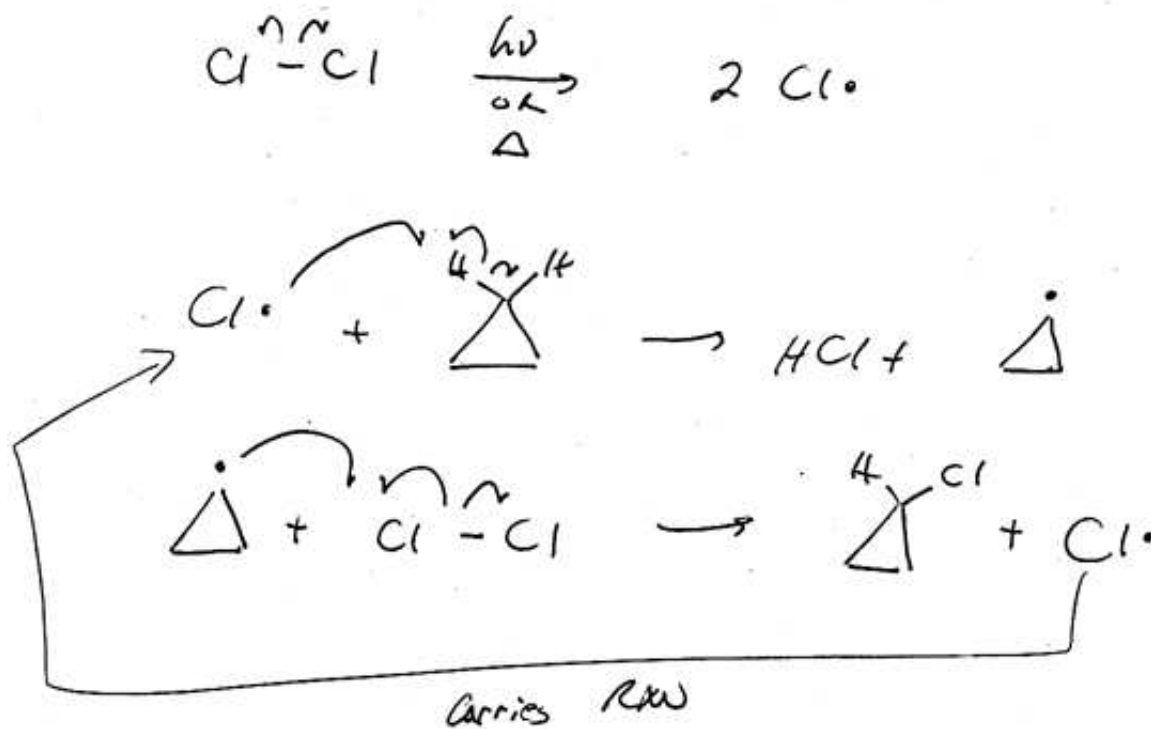 Cl – Cl hν or Δ → 2 Cl•
Cl• + H H → HCl + •
• + Cl – Cl → H Cl + Cl•
Carries RXN